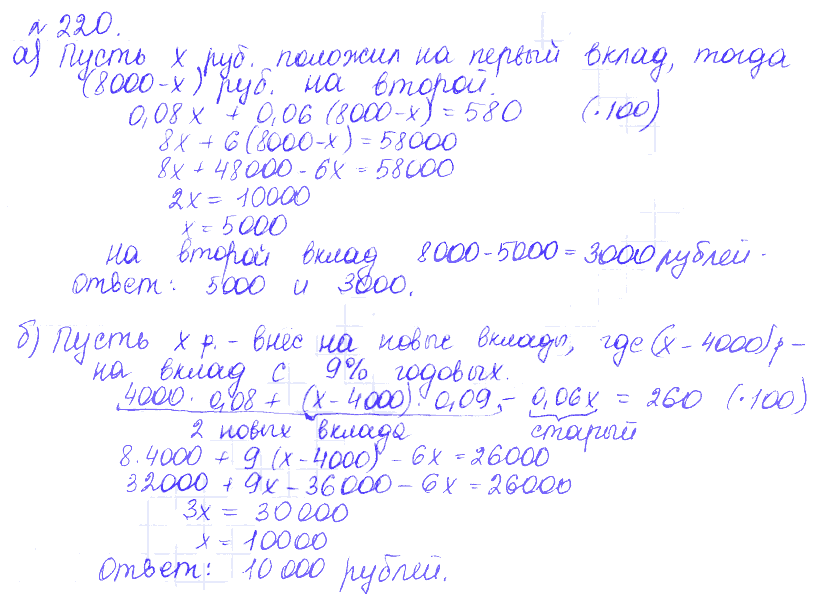 № 220.
а) Пусть х руб. положил на первый вклад, тогда
(8000-х) руб. на второй.
0,08х + 0,06 (8000-х) = 580 (·100)
8х + 6 (8000-х) = 58000
8х + 48000 - 6х = 58000
2х = 10000
х = 5000
На второй вклад 8000-5000 = 3000 рублей.
Ответ: 5000 и 3000.
б) Пусть х р. - внёс на новые вклады, где (х - 4000) р -
на вклад с 9% годовых.
4000 · 0,08 + (х - 4000) · 0,09 - 0,06х = 260 (·100)
2 новых вклада старый
8·4000 + 9 (х - 4000) - 6х = 26000
32000 + 9х - 36000 - 6х = 26000
3х = 30000
х = 10000
Ответ: 10 000 рублей.